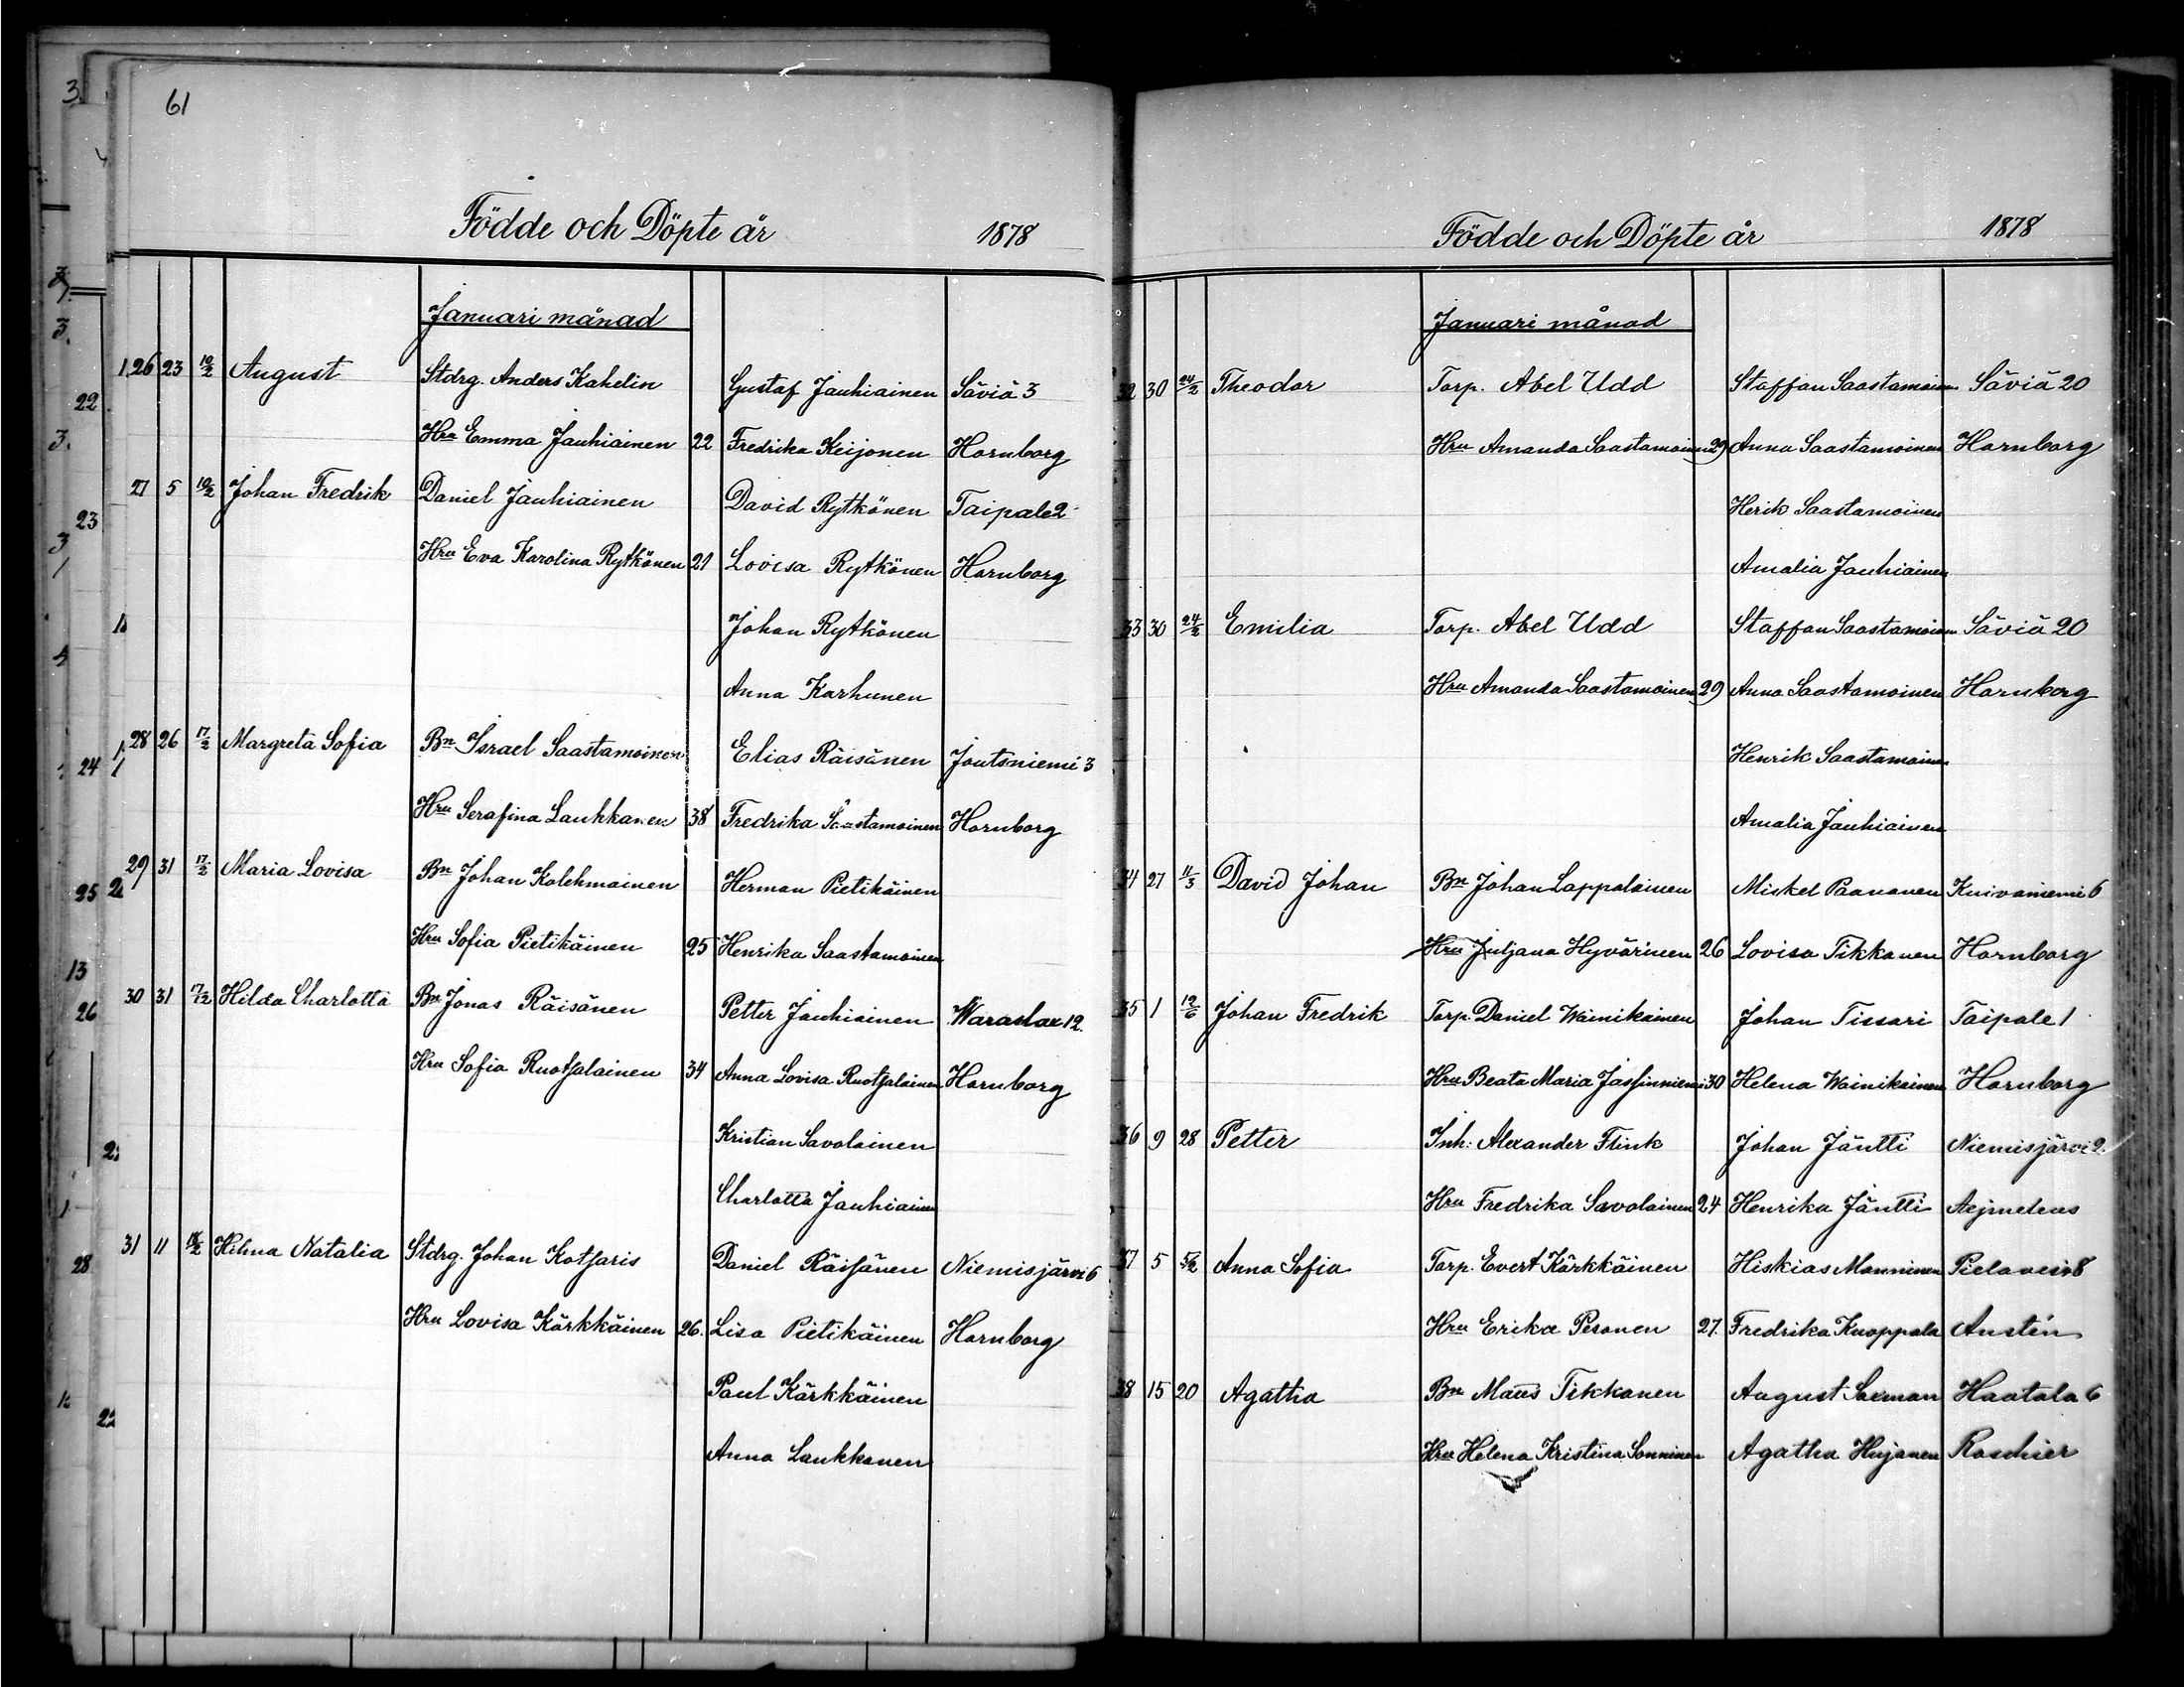 61
Födde och Döpte år 1878
Januari månad
26 23 10/2 August Stdrg. Anders Kahelin Gustaf Jauhiainen Säviä 3
Hru Emma Jauhiainen 22 Fredrika Keijonen Hornborg
27 5 10/2 Johan Fredrik Daniel Jauhiainen David Rytkönen Taipale 2
Hru Eva Karolina Rytkönen 21 Lovisa Rytkönen Hornborg
Johan Rytkönen
Anna Karhunen
28 26 17/2 Margreta Sofia Bn Israel Saastamoinen Elias Räisänen Joutsniemi 3
Hru Serafina Laukkanen 38 Fredrika Saastamoinen Hornborg
29 31 17/2 Maria Lovisa Bn Johan Kolehmainen Herman Pietikäinen
Hru Sofia Pietikäinen 25 Henrika Saastamoinen
30 31 17/2 Hilda Charlotta Bn Jonas Räisänen Petter Jauhiainen Waraslax 12.
Hru Sofia Ruotsalainen 34 Anna Lovisa Ruotsalainen Hornborg
Kristian Savolainen
Charlotta Jauhiainen
31 11 Hilma Natalia Stdrg. Johan Kotsaris Daniel Räisänen Niemisjärvi 6
Hru Lovisa Kärkkäinen 26. Lisa Pietikäinen Hornborg
Paul Kärkkäinen
Anna Laukkanen
Födde och Döpte år 1878
Januari månad
32 30 24/2 Theodor Torp. Abel Udd Staffan Saastamoinen Säviä 20
Hru Amanda Saastamoinen 29 Anna Saastamoinen Hornborg
Herik Saastamoinen
Amalia Jauhiainen
33 30 24/2 Emilia Torp. Abel Udd Staffan Saastamoinen Säviä 20
Hru Amanda Saastamoinen 29 Anna Saastamoinen Hornborg
Henrik Saastamoinen
Amalia Jauhiainen
34 27 11/3 David Johan Bn Johan Lappalainen Mickel Paananen Kuivaniemi 6
Hru Juljana Hyvärinen 26 Lovisa Tikkanen Hornborg
35 1 12/6 Johan Fredrik Torp. Daniel Wainikainen Johan Tissari Taipale 1
Hru Beata Maria Jassinniemi 30 Helena Wainikainen Hornborg
36 9 28 Petter Inh. Alexander Flink Johan Jäntti Niemisjärvi 2.
Hru Fredrika Savolainen 24 Henrika Jäntti Aejmeleus
37 5 5/2 Anna Sofia Torp. Evert Kärkkäinen Hiskias Manninen Pielavesi 8
Hru Erika Pesonen 27. Fredrika Knoppala Austén
38 15 20 Agatha Bn Maus Tikkanen August Saxman Haatala 6
Hru Helena Kristina Sonninen Agatha Hujanen Roschier